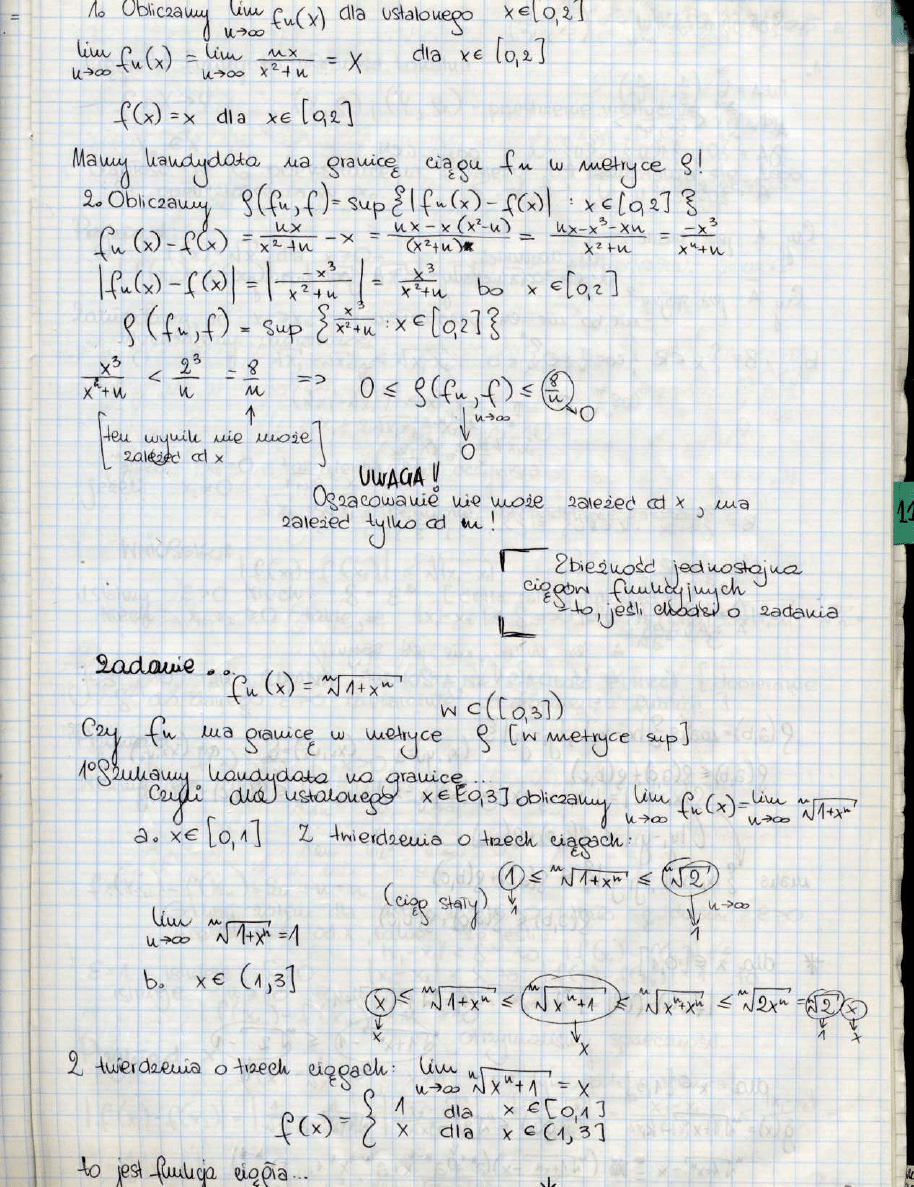 1. Obliczamy lim n→∞ fn(x) dla ustalonego x∈[0,2]
lim n→∞ fn(x) = lim n→∞ nx/(x²+n) = x dla x∈[0,2]
f(x) = x dla x∈[0,2]
Mamy kandydata na granicę ciągu fn w metryce ρ!
2. Obliczamy ρ(fn,f) = sup{|fn(x) - f(x)| : x∈[0,2]}
fn(x) - f(x) = nx/(x²+n) - x = (nx - x(x²-n))/(x²+n) = (nx-x³-xn)/(x²+n) = -x³/(x²+n)
|fn(x) - f(x)| = |-x³/(x²+n)| = x³/(x²+n) bo x∈[0,2]
ρ(fn,f) = sup{x³/(x²+n) : x∈[0,2]}
x³/(x²+n) < 2³/n = 8/n => 0 ≤ ρ(fn,f) ≤ 8/n → 0
↑ ↓ n→∞
[ten wynik nie może 0
zależeć od x]
UWAGA!
Oszacowanie nie może zależeć od x, ma
zależeć tylko od n!
11
Zbieżność jednostajna
ciągów funkcyjnych
= to, jeśli chodzi o zadania
Zadanie...
fn(x) = ⁿ√(1+xⁿ)
w C([0,3])
Czy fn ma granicę w metryce ρ [w metryce sup]
1° Szukamy kandydata na granicę...
Czyli dla ustalonego x∈[0,3] obliczamy lim n→∞ fn(x) = lim n→∞ ⁿ√(1+xⁿ)
a. x∈[0,1] Z twierdzenia o trzech ciągach:
1 ≤ ⁿ√(1+xⁿ) ≤ ⁿ√2
(ciąg stały) ↓ 1 ↓ n→∞ 1
lim n→∞ ⁿ√(1+xⁿ) = 1
b. x∈(1,3]
x ≤ ⁿ√(1+xⁿ) ≤ ⁿ√(xⁿ+1) ≤ ⁿ√(xⁿ+xⁿ) ≤ ⁿ√(2xⁿ) = ⁿ√2 x
↓ x ↓ x ↓ 1 ↓ x
Z twierdzenia o trzech ciągach: lim n→∞ ⁿ√(xⁿ+1) = x
f(x) = { 1 dla x∈[0,1]
x dla x∈(1,3]
to jest funkcja ciągła...